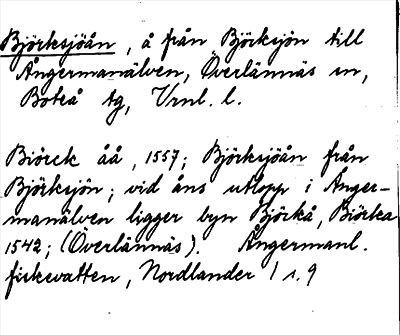 Björksjöån, å från Björksjön till
Ångermanälven, Överlännäs sn,
Boteå tg, Vrnl. l.
Biörck åå, 1557; Björksjöån från
Björksjön; vid åns utlopp i Ånger-
manälven ligger byn Björkå, Biörka
1542; (Överlännäs). Ångermanl.
fiskevatten, Nordlander / s. 9